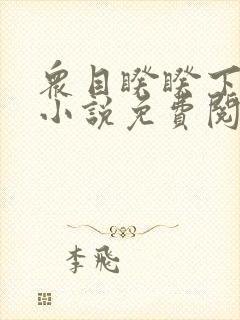 衆目睽睽下
小說免費閱
李飛